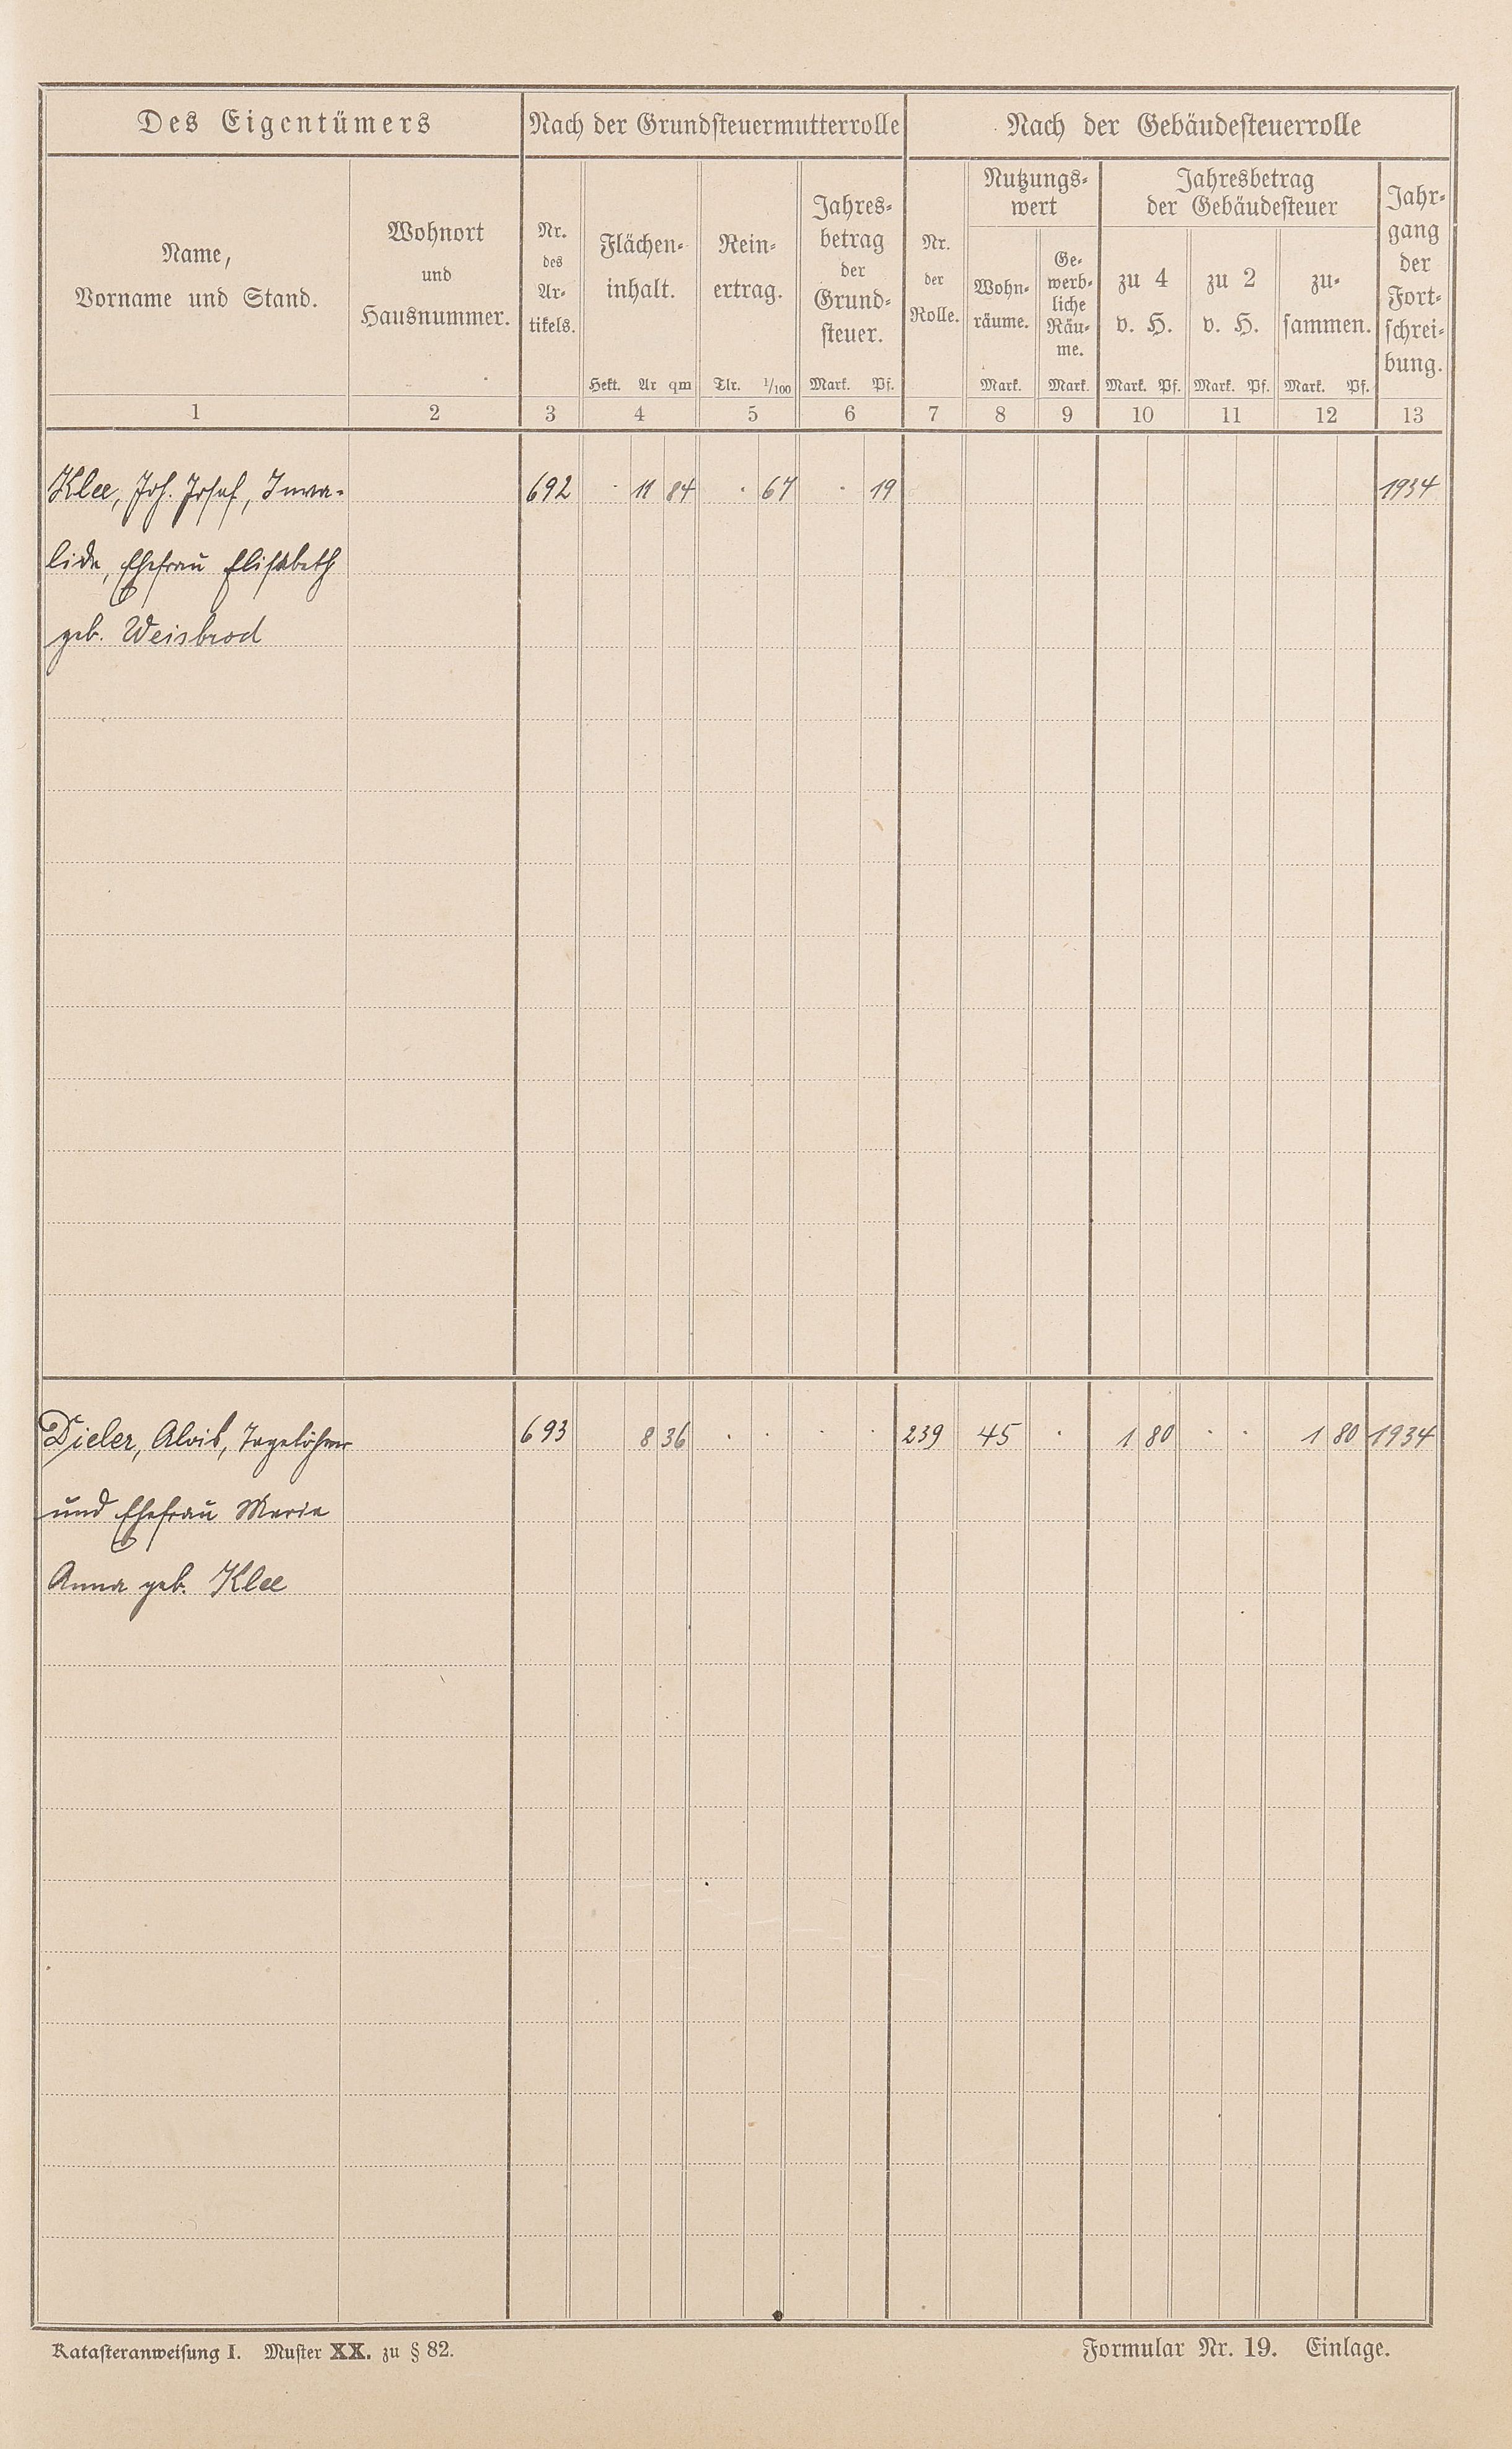 Des Eigentümers Nach der Grundsteuermutterrolle Nach der Gebäudesteuerrolle
Name,
Vorname und Stand.
Wohnort
und
Hausnummer.
Nr.
des
Ar-
tikels.
Flächen-
inhalt.
Hekt. Ar qm
Rein-
ertrag.
Tlr. 1/100
Jahres-
betrag
der
Grund-
steuer.
Mark. Pf.
Nr.
der
Rolle.
Nutzungs-
wert
Wohn-
räume.
Mark.
Ge-
werb-
liche
Räu-
me.
Mark.
Jahresbetrag
der Gebäudesteuer
zu 4
v. H.
Mark. Pf.
zu 2
v. H.
Mark. Pf.
zu-
sammen.
Mark. Pf.
Jahr-
gang
der
Fort-
schrei-
bung.
1 2 3 4 5 6 7 8 9 10 11 12 13
Klee, Joh. Josef, Inva- 692 · 11 84 · 67 · 19 1934
lide, Ehefrau Elisabeth
geb. Weisbrod
Dieler, Alois, Tagelöhner 693 8 36 · · · · 239 45 · 1 80 · · 1 80 1934
und Ehefrau Maria
Anna geb. Klee
Katasteranweisung I. Muster XX. zu § 82. Formular Nr. 19. Einlage.